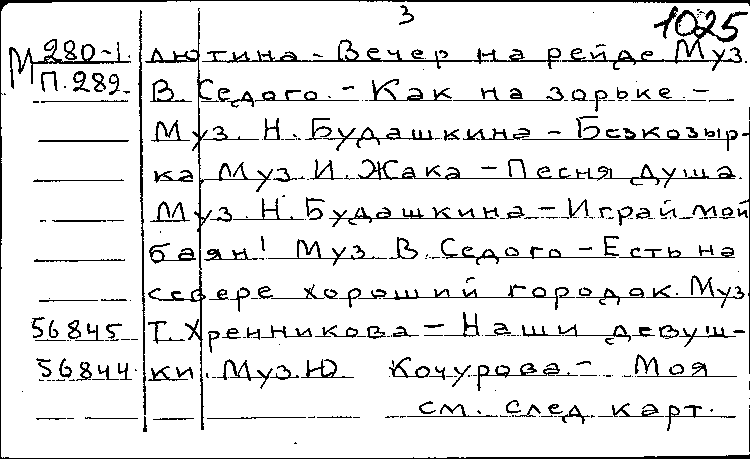 3
1025
М 280-I. лютина - Вечер на рейде Муз.
П.282. В. Седого. - Как на зорьке -
Муз. Н. Будашкина - Безкозыр-
ка. Муз. И. Жака - Песня душа.
Муз. Н. Будашкина - Играй мой
баян! Муз. В. Седого - Есть на
севере хороший городок. Муз.
56845 Т. Хренникова - Наши девуш-
56844 ки. Муз. Ю Кочурова. - Моя
см. след карт.